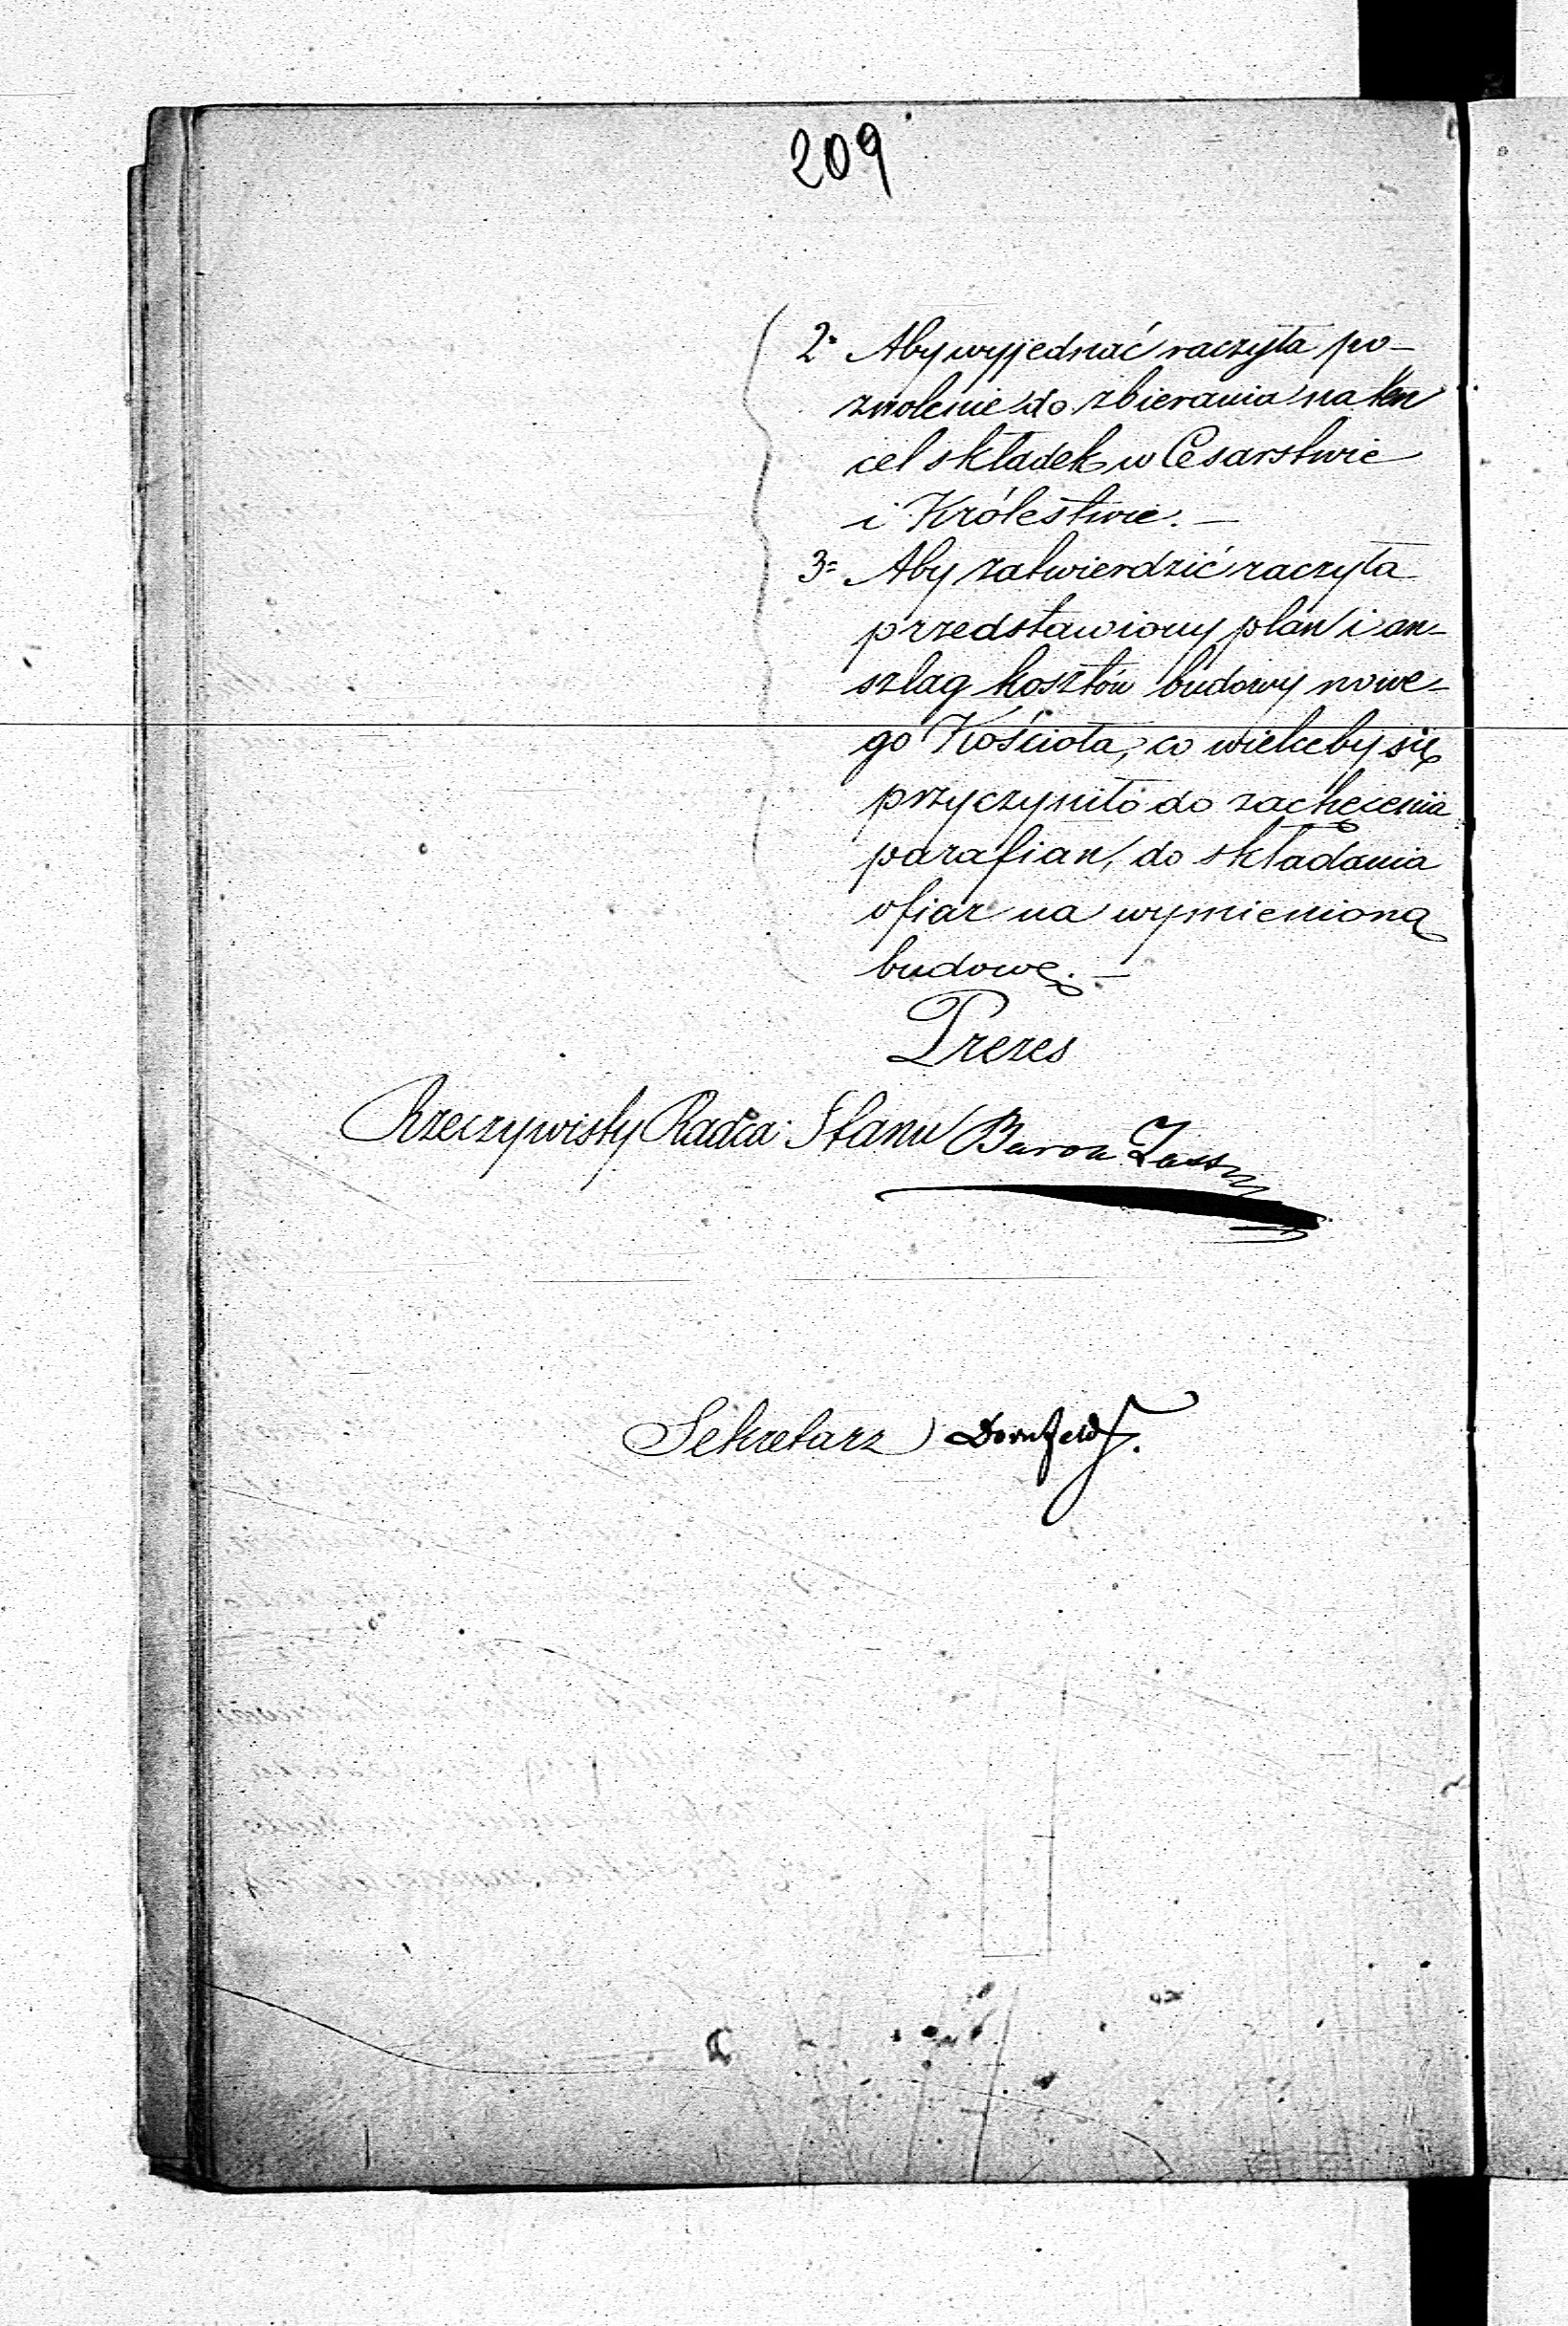 209
2= Aby wyjednać raczyła po-
zwolenie do zbierania na ten
cel składek w Cesarstwie
i Królestwie. —
3= Aby zatwierdzić raczyła
przedstawiony plan i an-
szlag kosztów budowy nowe-
go Kościoła, co wieleby się
przyczyniło do zachęcenia
parafian, do składania
ofiar na wymienioną
budowę. —
Prezes
Rzeczywisty Radca Stanu Baron
Sekretarz Dornfeld